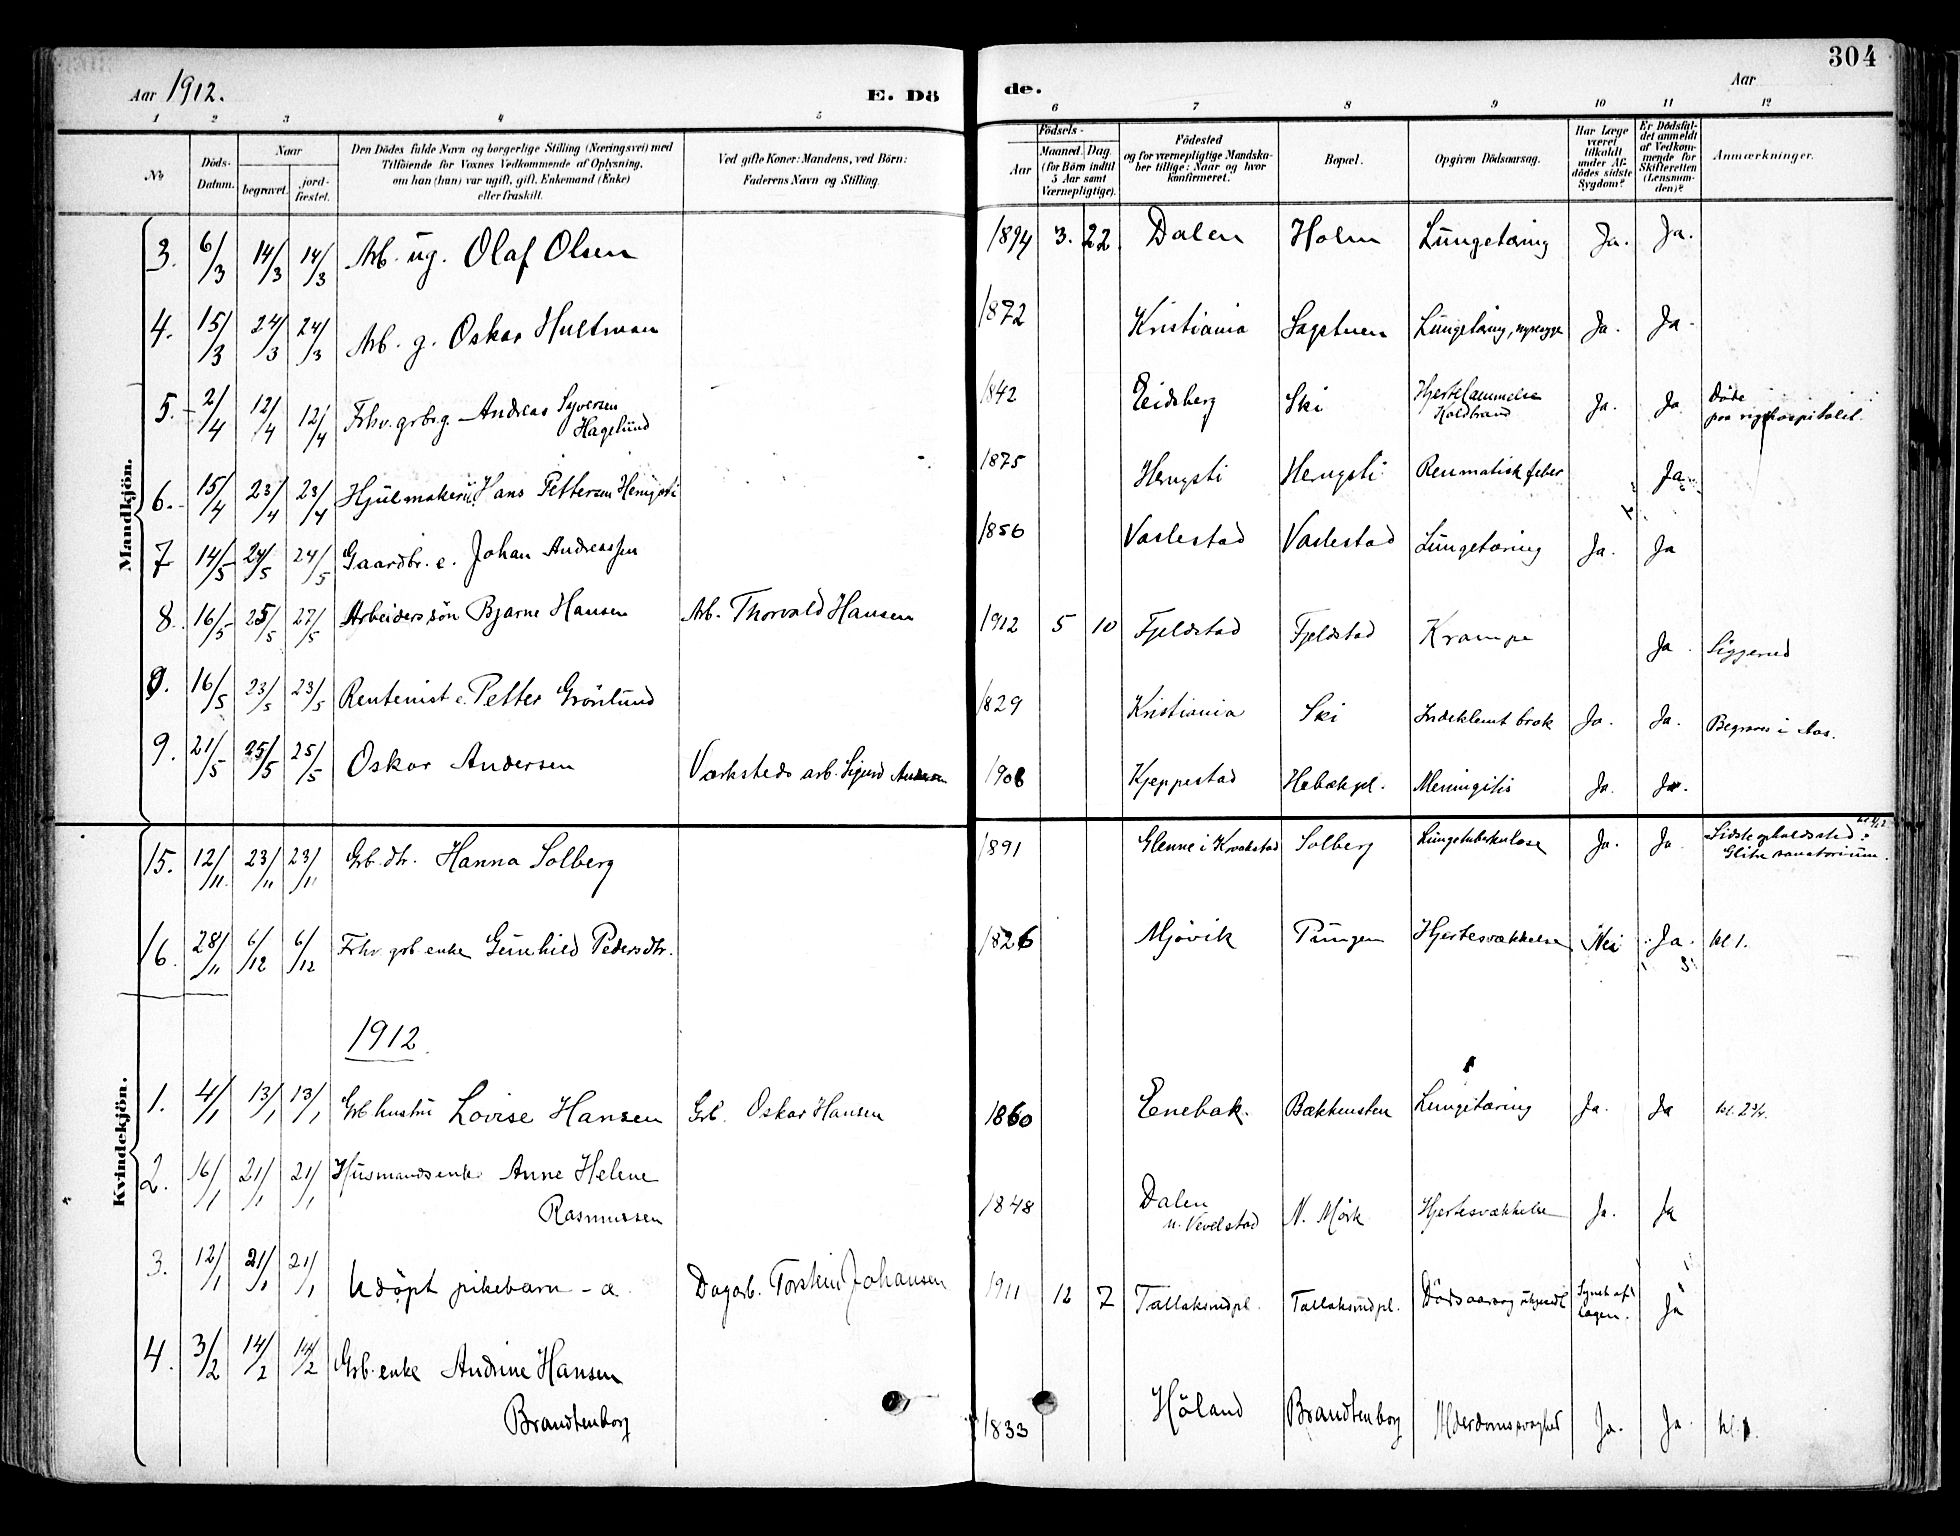 304
Aar 1912.
E. Dö de.
Aar
1 2 3 4 5 6 7 8 9 10 11 12
No
Döds-Datum.
Naar
begravet.
jordfæstet.
Den Dödes fulde Navn og borgerlige Stilling (Næringsvei) med
Tilföiende for Voxnes Vedkommende af Oplysning,
om han (hun) var ugift, gift, Enkemand (Enke)
eller fraskilt.
Ved gifte Koner: Mandens, ved Börn:
Faderens Navn og Stilling.
Födsels-
Aar
Maaned. Dag.
(for Börn indtil
5 Aar samt
Værnepligtige).
Födested
og for værnepligtige Mandska-
ber tillige: Naar og hvor
konfirmeret.
Bopæl.
Opgiven Dödsaarsag.
Har Læge
været
tilkaldt
under Af-
dödes sidste
Sygdom?
Er Dödsfal-
det anmeldt
af Vedkom-
mende for
Skifteretten
(Lensman-
den)?
Anmærkninger.
Mandkjön.
3. 6/3 14/3 14/3 Arb. ug. Olaf Olsen 1894 3. 22. Dalen Holm Lungetæring Ja. Ja.
4. 15/3 24/3 24/3 Arb. g. Oskar Hultman 1872 Kristiania Sagstuen Lungetæring, Ja. Ja.
5. 2/4 12/4 12/4 Fhv. grbr g. Andreas Syversen 1842 Eidsberg Ski Hjertelammelse Ja. Ja Döde
Hagelund Koldbrand paa rigshospitalet.
6. 15/4 23/4 23/4 Hjulmaker Hans Pettersen Hengsti 1875 Hengsti Hengsti Reumatisk feber Ja.
7 14/5 24/5 24/5 Gaardbr. e. Johan Andreassen 1856 Vaslestad Vaslestad Lungetæring Ja. Ja
8. 16/5 25/5 27/5 Arbeiderssön Bjarne Hansen Arb. Thorvald Hansen 1912 5 10 Fjeldstad Fjeldstad Krampe Ja. Siggerud
9. 16/5 23/5 23/5 Rentenist e. Petter Grönlund 1829 Kristiania Ski Indeklemt brok Ja. Ja. Begraves i Aas.
9. 21/5 25/5 25/5 Oskar Andersen Værksteds arb. Sigurd Andersen 1906 Kjeppestad Hebækpl. Meningitis Ja. Ja.
Kvindekjön.
15. 12/11. 23/11 23/11 Grb. dtr. Hanna Solberg 1891 Glenne i Kraakstad Solberg Lungetuberkulose Ja. Ja. Sidste opholdssted:
Glitre sanatorium.
16. 28/11 6/12 6/12 Fhv. grb enke Gunhild Pedersdtr. 1826 Mjövik Pungen Hjertesvækkelse Nei Ja. kl 1.
1912.
1. 4/1 13/1 13/1 Grb hustru Lovise Hansen Grb. Oskar Hansen 1860 Enebak. Bækkensten Lungetæring Ja. Ja kl. 2¾.
2. 16/1 21/1 21/1 Husmandsenke Anne Helene
Rasmussen 1848 Dalen
u. Vevelstad N. Mörk Hjertesvækkelse Ja. Ja
3. 12/1 21/1 21/1 Udöpt pikebarn - æ. Dagarb. Torstein Johansen 1911 12 7 Tallaksrudpl. Tallaksrudpl. Dödsaarsag ukjendt Synet af
lægen. Ja
4. 3/2 14/2 14/2 Grb. enke Andrine Hansen
Brandtenborg 1833 Höland Brandtenborg Alderdomssvaghed Ja. Ja. kl. 1.